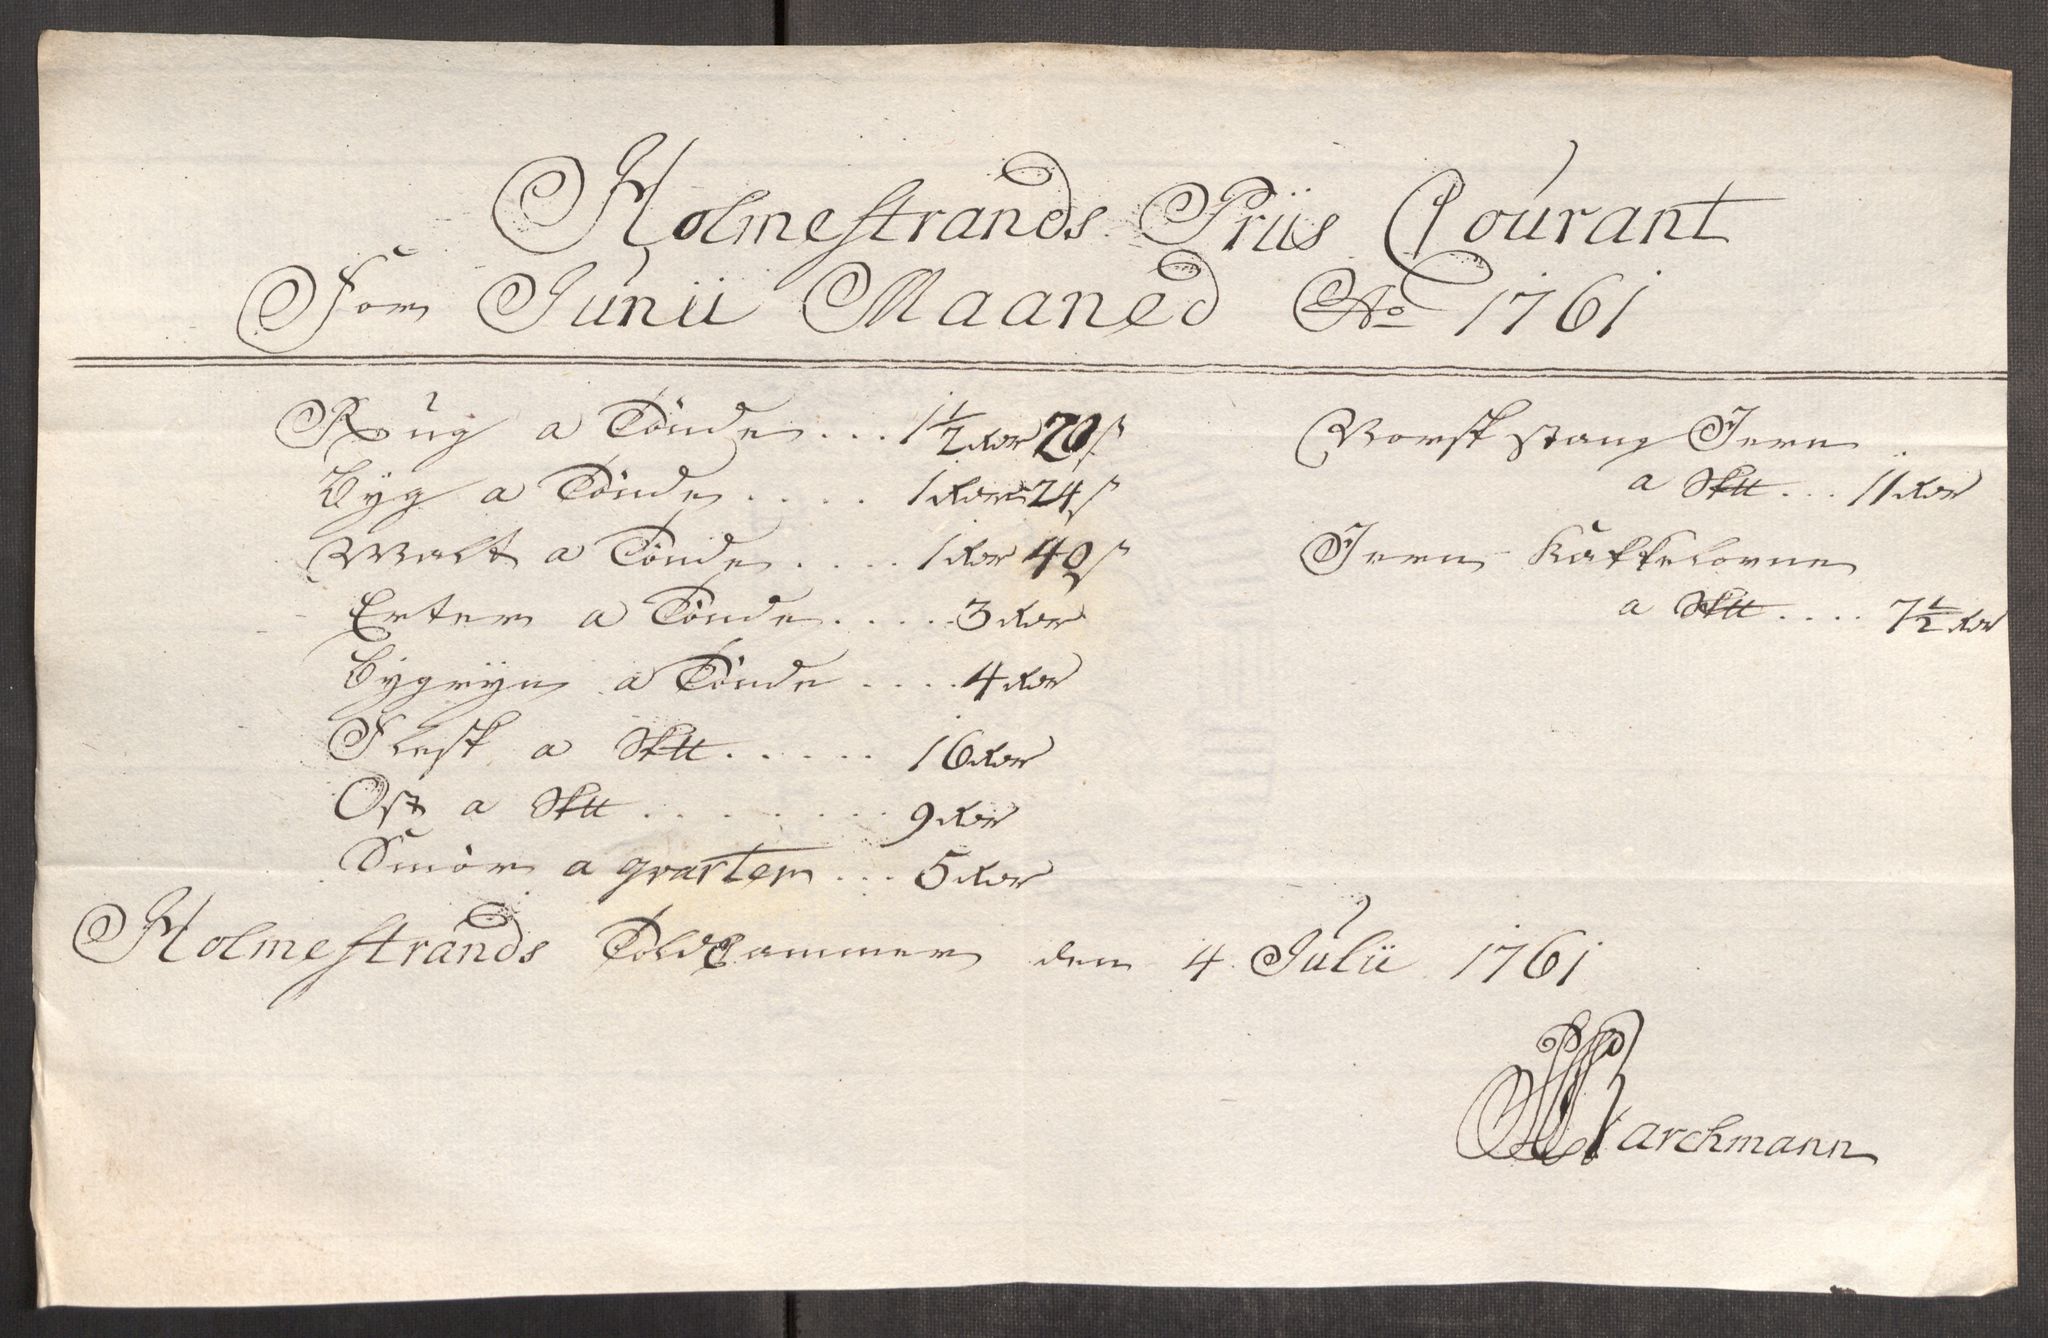 Holmestrands Priis Courant
For Junii Maaned Ao 1761
Rúg a Tönde ... 1 1/2 Rdr 20 s
Byg a Tönde ..... 1 Rdr 24 s
Malt a Tönde ..... 1 Rdr 40 s
Erter a Tönde ..... 3 Rdr
Byggryn a Tönde .... 4 Rdr
Flesk a Sktt ..... 16 Rdr
Ost a Sktt ....... 9 Rdr
Smör a qvarteer ... 5 Rdr
Norsk stang Jern
a Sktt ... 11 Rdr
Jern Kakkelovne
a Sktt .... 7 1/2 Rdr
Holmestrands Told Cammer den 4 Julii 1761
Barchmann